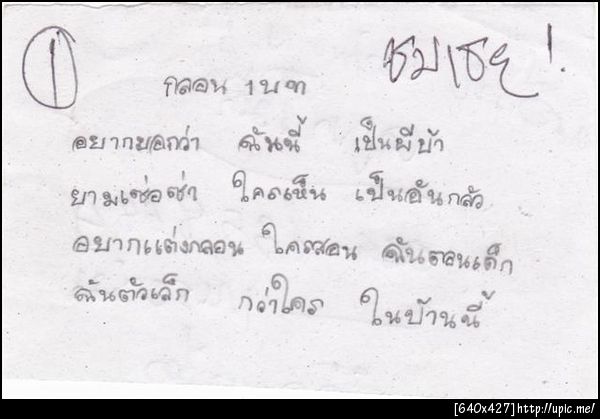 1
ชมเชย!
กลอน 1 บท
อยากบอกว่า ฉันนี้ เป็นผีบ้า
ยามเซ่อซ่า ใครเห็น เป็นอันกลัว
อยากแต่งกลอน ใครสอน ฉันตอนเด็ก
ฉันตัวเล็ก กว่าใคร ในบ้านนี้
[640x427]http://upic.me/